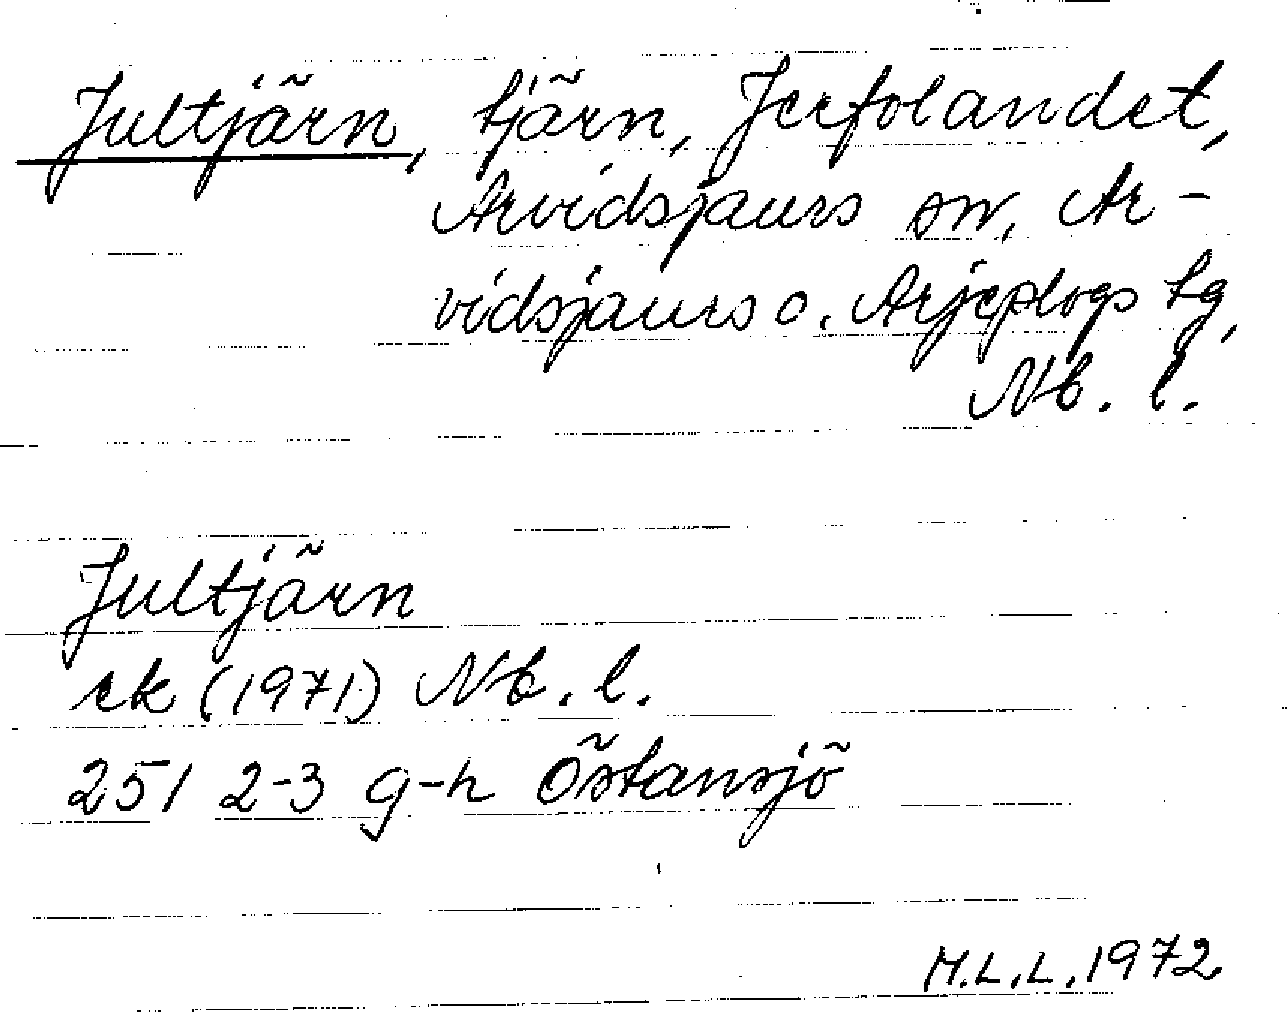 Jultjärn, tjärn, Jerfolandet,
Arvidsjaurs sn, Ar-
vidsjaurs o. Arjeplogs tg,
Nb. l.
Jultjärn
ek (1971) Nb. l.
251 2-3 g-h Östansjö
M.L.L. 1972